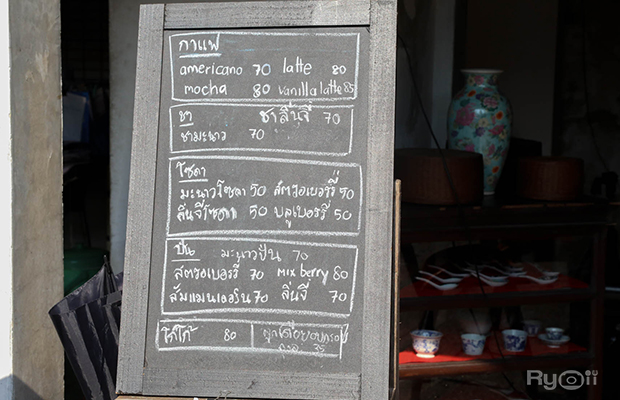 กาแฟ
americano 70 latte 80
mocha 80 vanilla latte 85
ชา ชาลิ้นจี่ 70
ชามะนาว 70
โซดา
มะนาวโซดา 50 สตรอเบอร์รี่ 50
ลิ้นจี่โซดา 50 บลูเบอร์รี่ 50
ปั่น มะนาวปั่น 70
สตรอเบอร์รี่ 70 mix berry 80
ส้มแมนดาริน 70 ลิ้นจี่ 70
โกโก้ 80
Ryoii